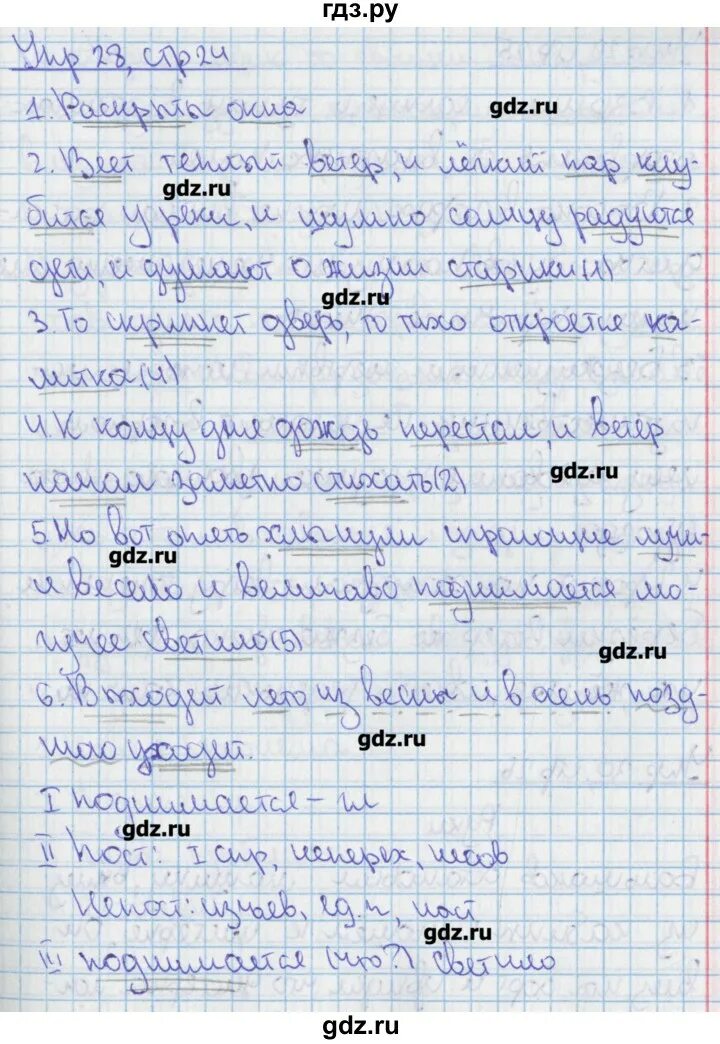 гдз.ру
Упр 28, стр 24
1. Раскрыты окна
gdz.ru
2. Веет теплый ветер, и лёгкий пар клу-
gdz.ru
бится у реки, и шумно солнцу радуются
дети, и думают о жизни старики (1)
gdz.ru
3. То скрипнет дверь, то тихо откроется ка-
литка. (4)
4. К концу дня дождь перестал, и ветер
gdz.ru
начал заметно стихать (2)
5. Но вот опять хлынули играющие лучи-
gdz.ru
и весело и величаво поднимается мо-
гучее светило (5)
gdz.ru
6. Выходит лето из весны и в осень позд-
gdz.ru
нюю уходит.
I поднимается – гл
gdz.ru
II Пост: I спр, неперех, несов
Непост: изъяв, ед.ч, наст
gdz.ru
III поднимается (что?) светило
gdz.ru